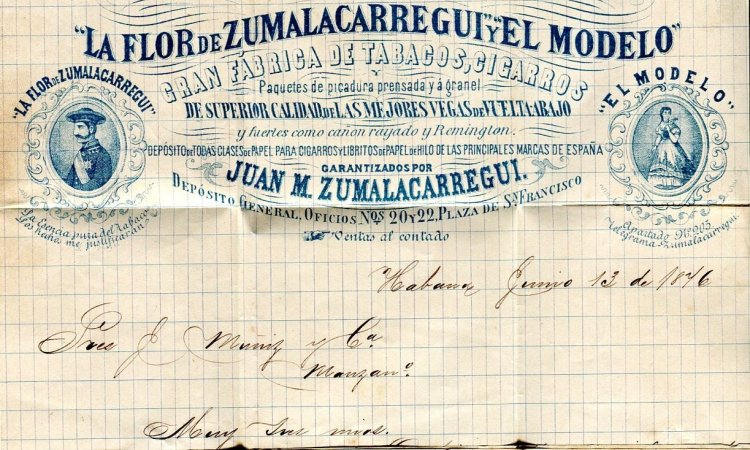 "LA FLOR DE ZUMALACARREGUI" Y "EL MODELO"
GRAN FÁBRICA DE TABACOS, CIGARROS
Y
Paquetes de picadura prensada y á granel
DE SUPERIOR CALIDAD DE LAS MEJORES VEGAS DE VUELTA ABAJO
y fuertes como cañon rayado y Remington.
DEPÓSITO DE TODAS CLASES DE PAPEL PARA CIGARROS Y LIBRITOS DE PAPEL DE HILO DE LAS PRINCIPALES MARCAS DE ESPAÑA
GARANTIZADOS POR
JUAN M. ZUMALACARREGUI.
DEPÓSITO GENERAL, OFICIOS Nos 20 Y 22, PLAZA DE Sn FRANCISCO
Ventas al contado
"LA FLOR DE ZUMALACARREGUI"
La Esencia pura del tabaco
Los hechos me justificarán
"EL MODELO"
Apartado No. 205
Telegrama Zumalacarregui
Habana Junio 13 de 1876
Sres J. Muñiz y Ca.
Manzano.
Muy Sres mios.